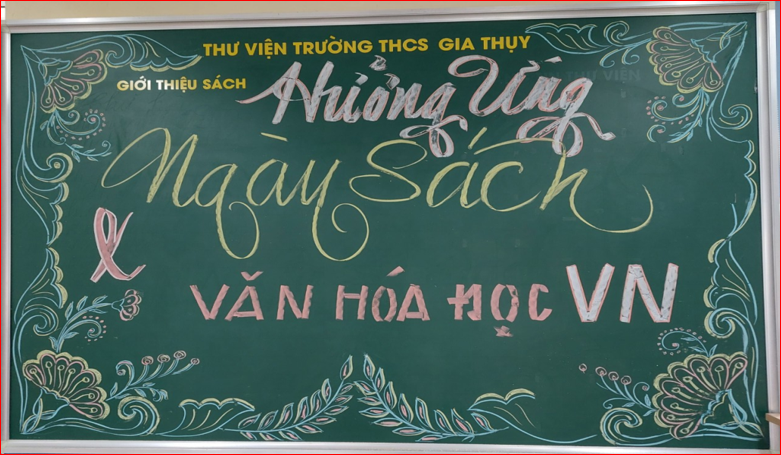 THƯ VIỆN TRƯỜNG THCS GIA THỤY
GIỚI THIỆU SÁCH
Hưởng Ứng
Ngày Sách
&
VĂN HÓA ĐỌC VN
THƯ VIỆN